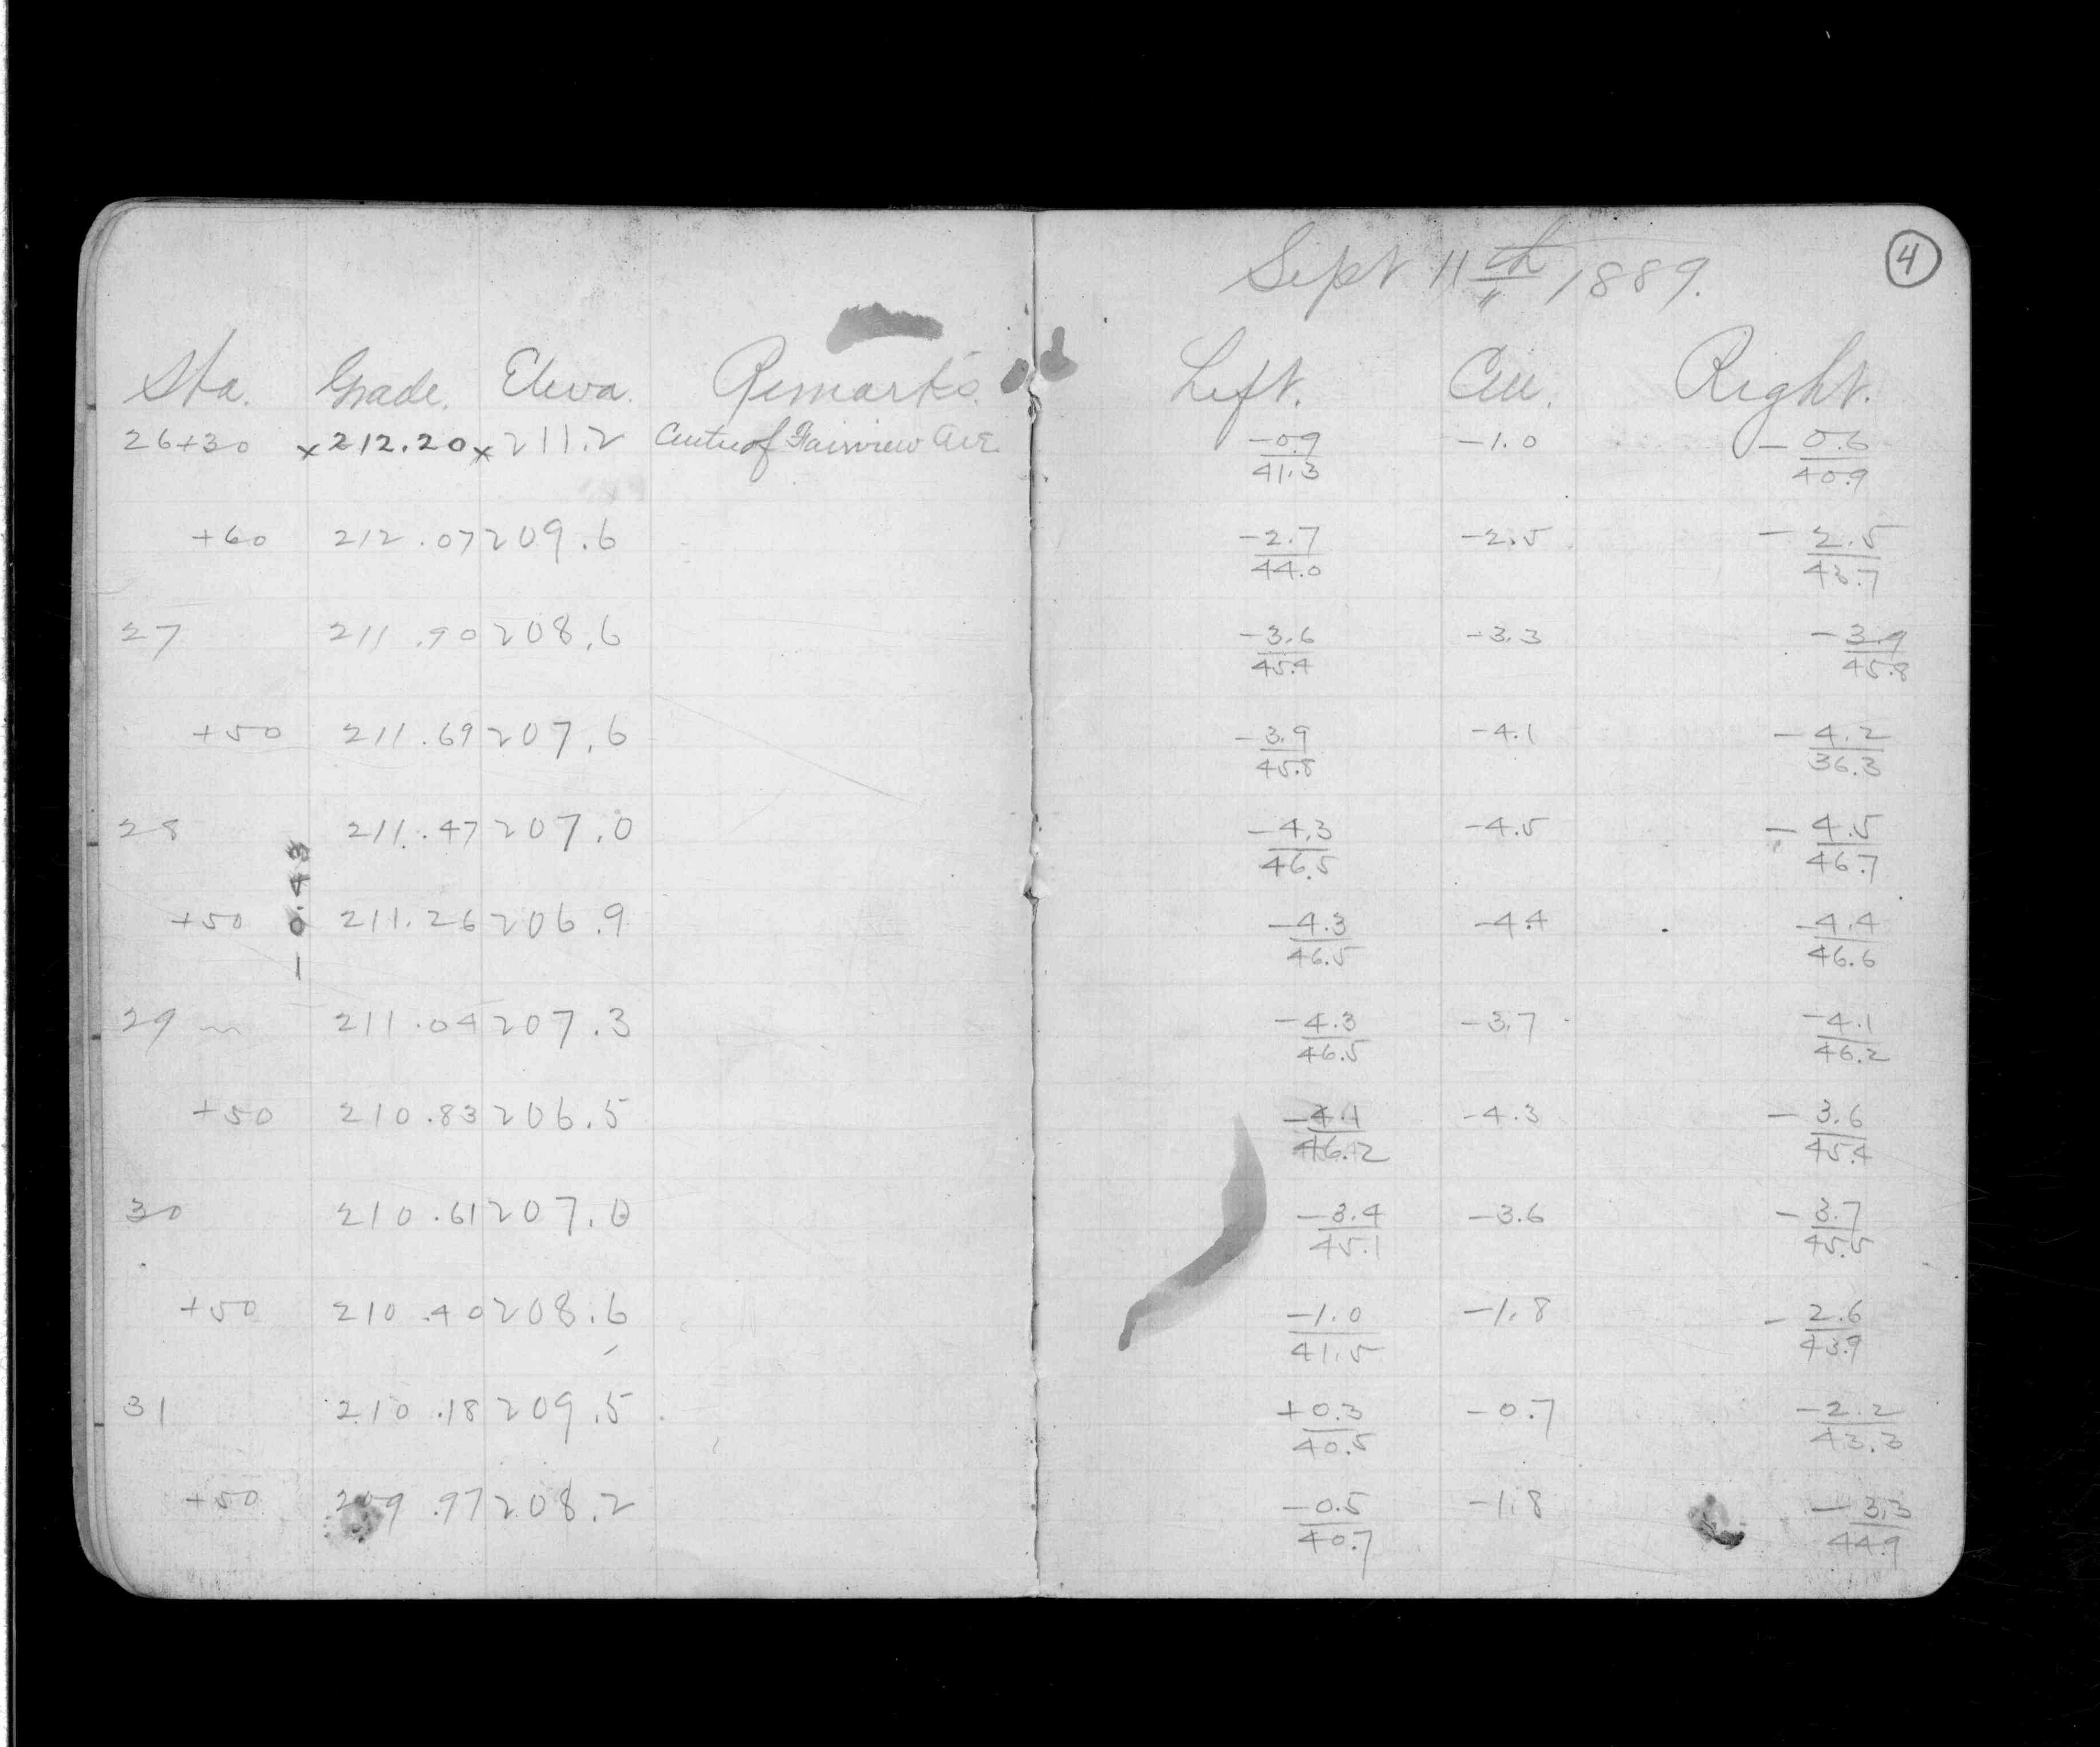 Sept 11th 1889.
4
Sta. Grade. Eleva. Remarks. Left. Cen. Right.
26+30 x212.20 x211.2 Centre of Fairview Ave. -0.9/41.3 -1.0 -0.6/40.9
+60 212.07 209.6 -2.7/44.0 -2.5 -2.5/43.7
27 211.90 208.6 -3.6/45.4 -3.3 -3.9/45.8
+50 211.69 207.6 -3.9/45.8 -4.1 -4.2/36.3
28 211.47 207.0 -4.3/46.5 -4.5 -4.5/46.7
-0.43
+50 211.26 206.9 -4.3/46.5 -4.4 -4.4/46.6
29 211.04 207.3 -4.3/46.5 -3.7 -4.1/46.2
+50 210.83 206.5 -4.1/46.2 -4.3 -3.6/45.4
30 210.61 207.0 -3.4/45.1 -3.6 -3.7/45.5
+50 210.40 208.6 -1.0/41.5 -1.8 -2.6/43.9
31 210.18 209.5 +0.3/40.5 -0.7 -2.2/43.3
+50 209.97 208.2 -0.5/40.7 -1.8 -3.3/44.9